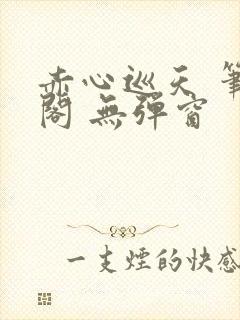 赤心巡天 筆
閣 無彈窗
一支煙的快感